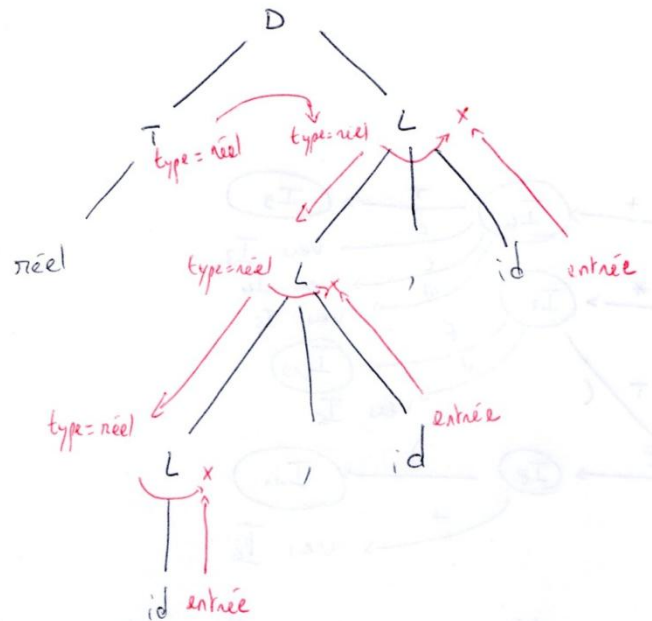 D
T type=réel type=réel L x
réel type=réel L x , id entrée
type=réel L x , id entrée
id entrée